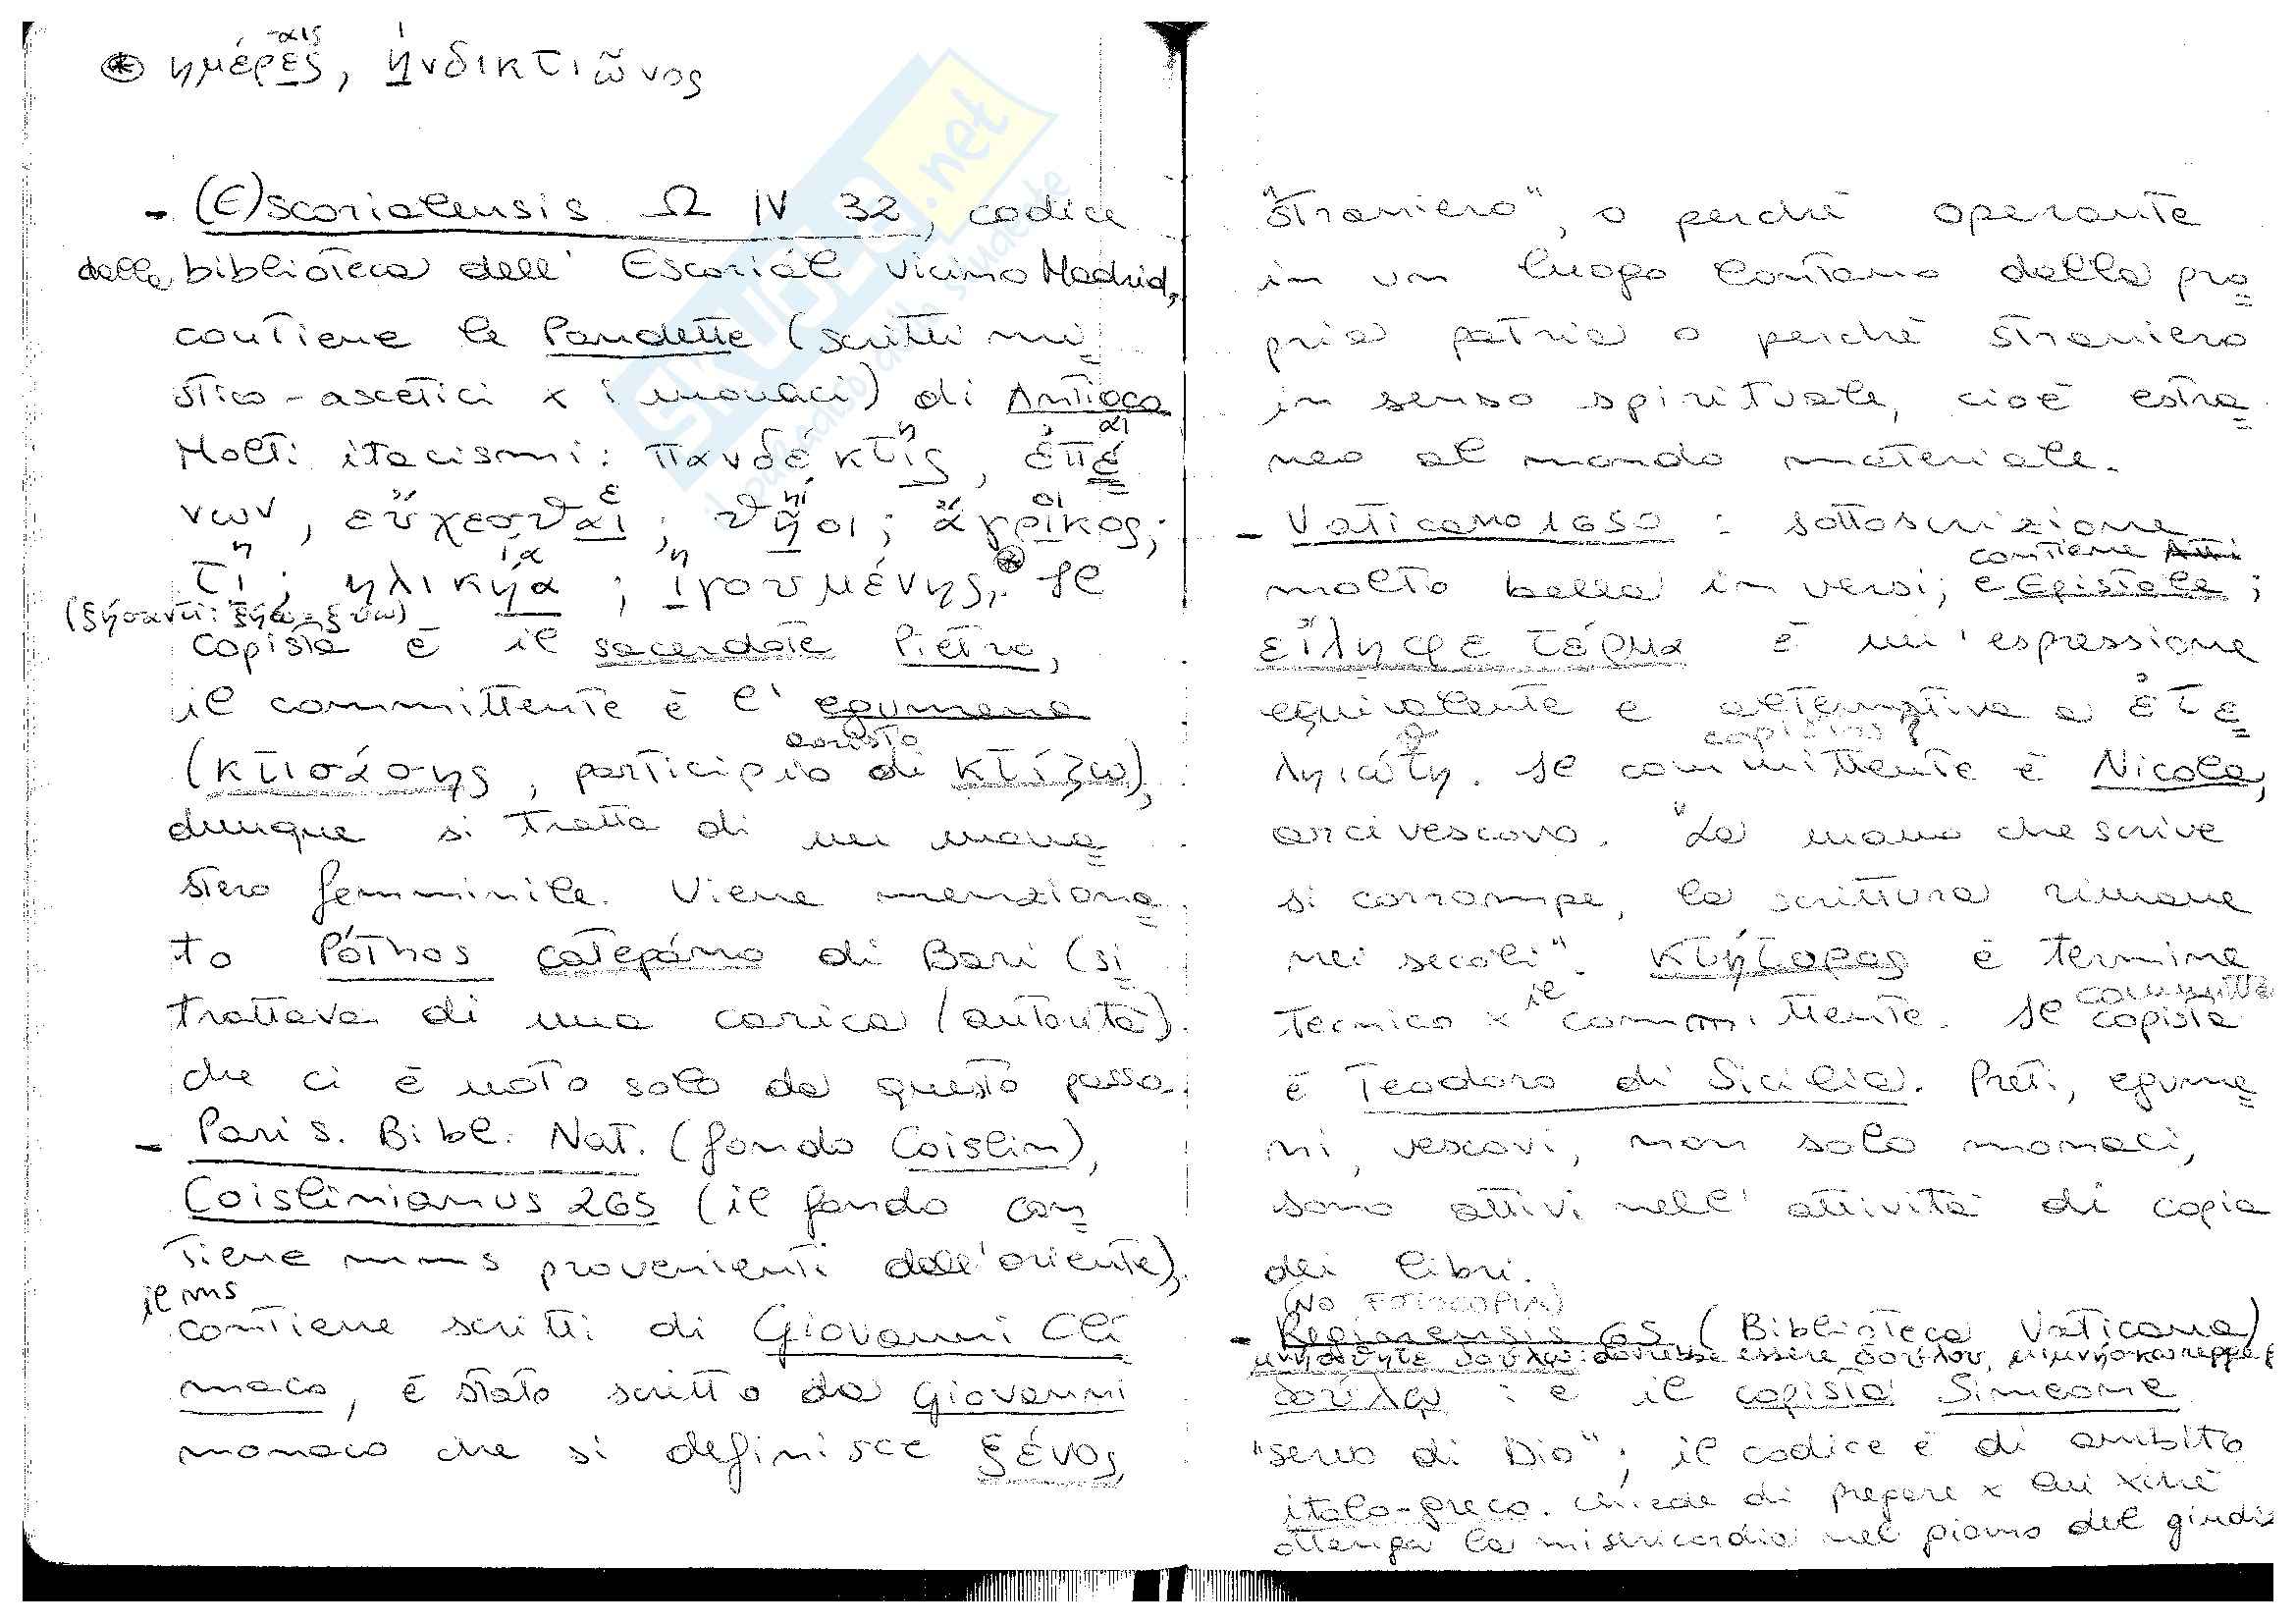 -αις
⊛ ημέρες, ήνδικτιῶνος
- (E)scorialensis Ω IV 32, codice
della biblioteca dell' Escoriál vicino Madrid,
contiene le Pandette (scritti mi=
stico-ascetici x i monaci) di Antioco
η αι
Molti itacismi: πανδέκτις, ἐπέ=
ε ηι οι
νων, εὔχεσθαι; θῆοι; ἄγρικος;
η ία η
τι; ηλικήα; ἰγουμένης,⊛ Il
copista è il sacerdote Pietro,
il committente è l' egumena
aoristo
(κτισάσης, participio di κτίζω),
dunque si tratta di un mona=
stero femminile. Viene menziona=
to Póthos catepáno di Bari (si=
trattava di una carica/autorità)
che ci è noto solo da questo passo.
- Paris. Bibl. Nat. (fondo Coislin),
Coislinianus 265 (il fondo con=
tiene mms provenienti dall'oriente),
il ms
contiene scritti di Giovanni Cli
maco, è stato scritto da Giovanni
monaco che si definisce ξένος,
"straniero", o perchè operante
in un luogo lontano dalla pro=
pria patria o perchè straniero
in senso spirituale, cioè estra=
neo al mondo materiale.
- Vaticano 1650 : sottoscrizione
contiene Atti
molto bella in versi; e Epistole;
εἴληφε τέρμα è un'espressione
equivalente e alternativa a ἐτε=
copista
ληιώθη. Il committente è Nicola,
arcivescovo. "La mano che scrive
si corrompe, la scrittura rimane
nei secoli". κτήτορος è termine
il committe
tecnico x committente. Il copista
è Teodoro di Sicilia. Preti, egume=
ni, vescovi, non solo monaci,
sono attivi nell' attività di copia
dei libri.
(NO FOTOCOPIA)
- Reginensis 65 (Biblioteca Vaticana)
δούλω: dovrebbe essere δούλου,
δούλω : è il copista Simeone
"servo di Dio"; il codice è di ambito
italo-greco. Chiede di pregare x lui xchè
ottenga la misericordia nel giorno del giudi